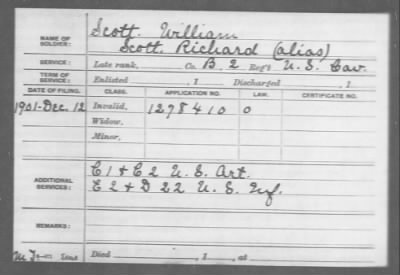 NAME OF SOLDIER: Scott, William
Scott, Richard (alias)
SERVICE: Late rank, Co. B, 2 Reg't U.S. Cav.
TERM OF SERVICE: Enlisted , 1 Discharged , 1
DATE OF FILING. CLASS. APPLICATION NO. LAW. CERTIFICATE NO.
1901-Dec. 12 Invalid, 1278410 0
Widow,
Minor,
ADDITIONAL SERVICES: C 1 & C 2 U.S. Art.
E 2 & D 22 U.S. Inf.
REMARKS:
Died , 1 , at